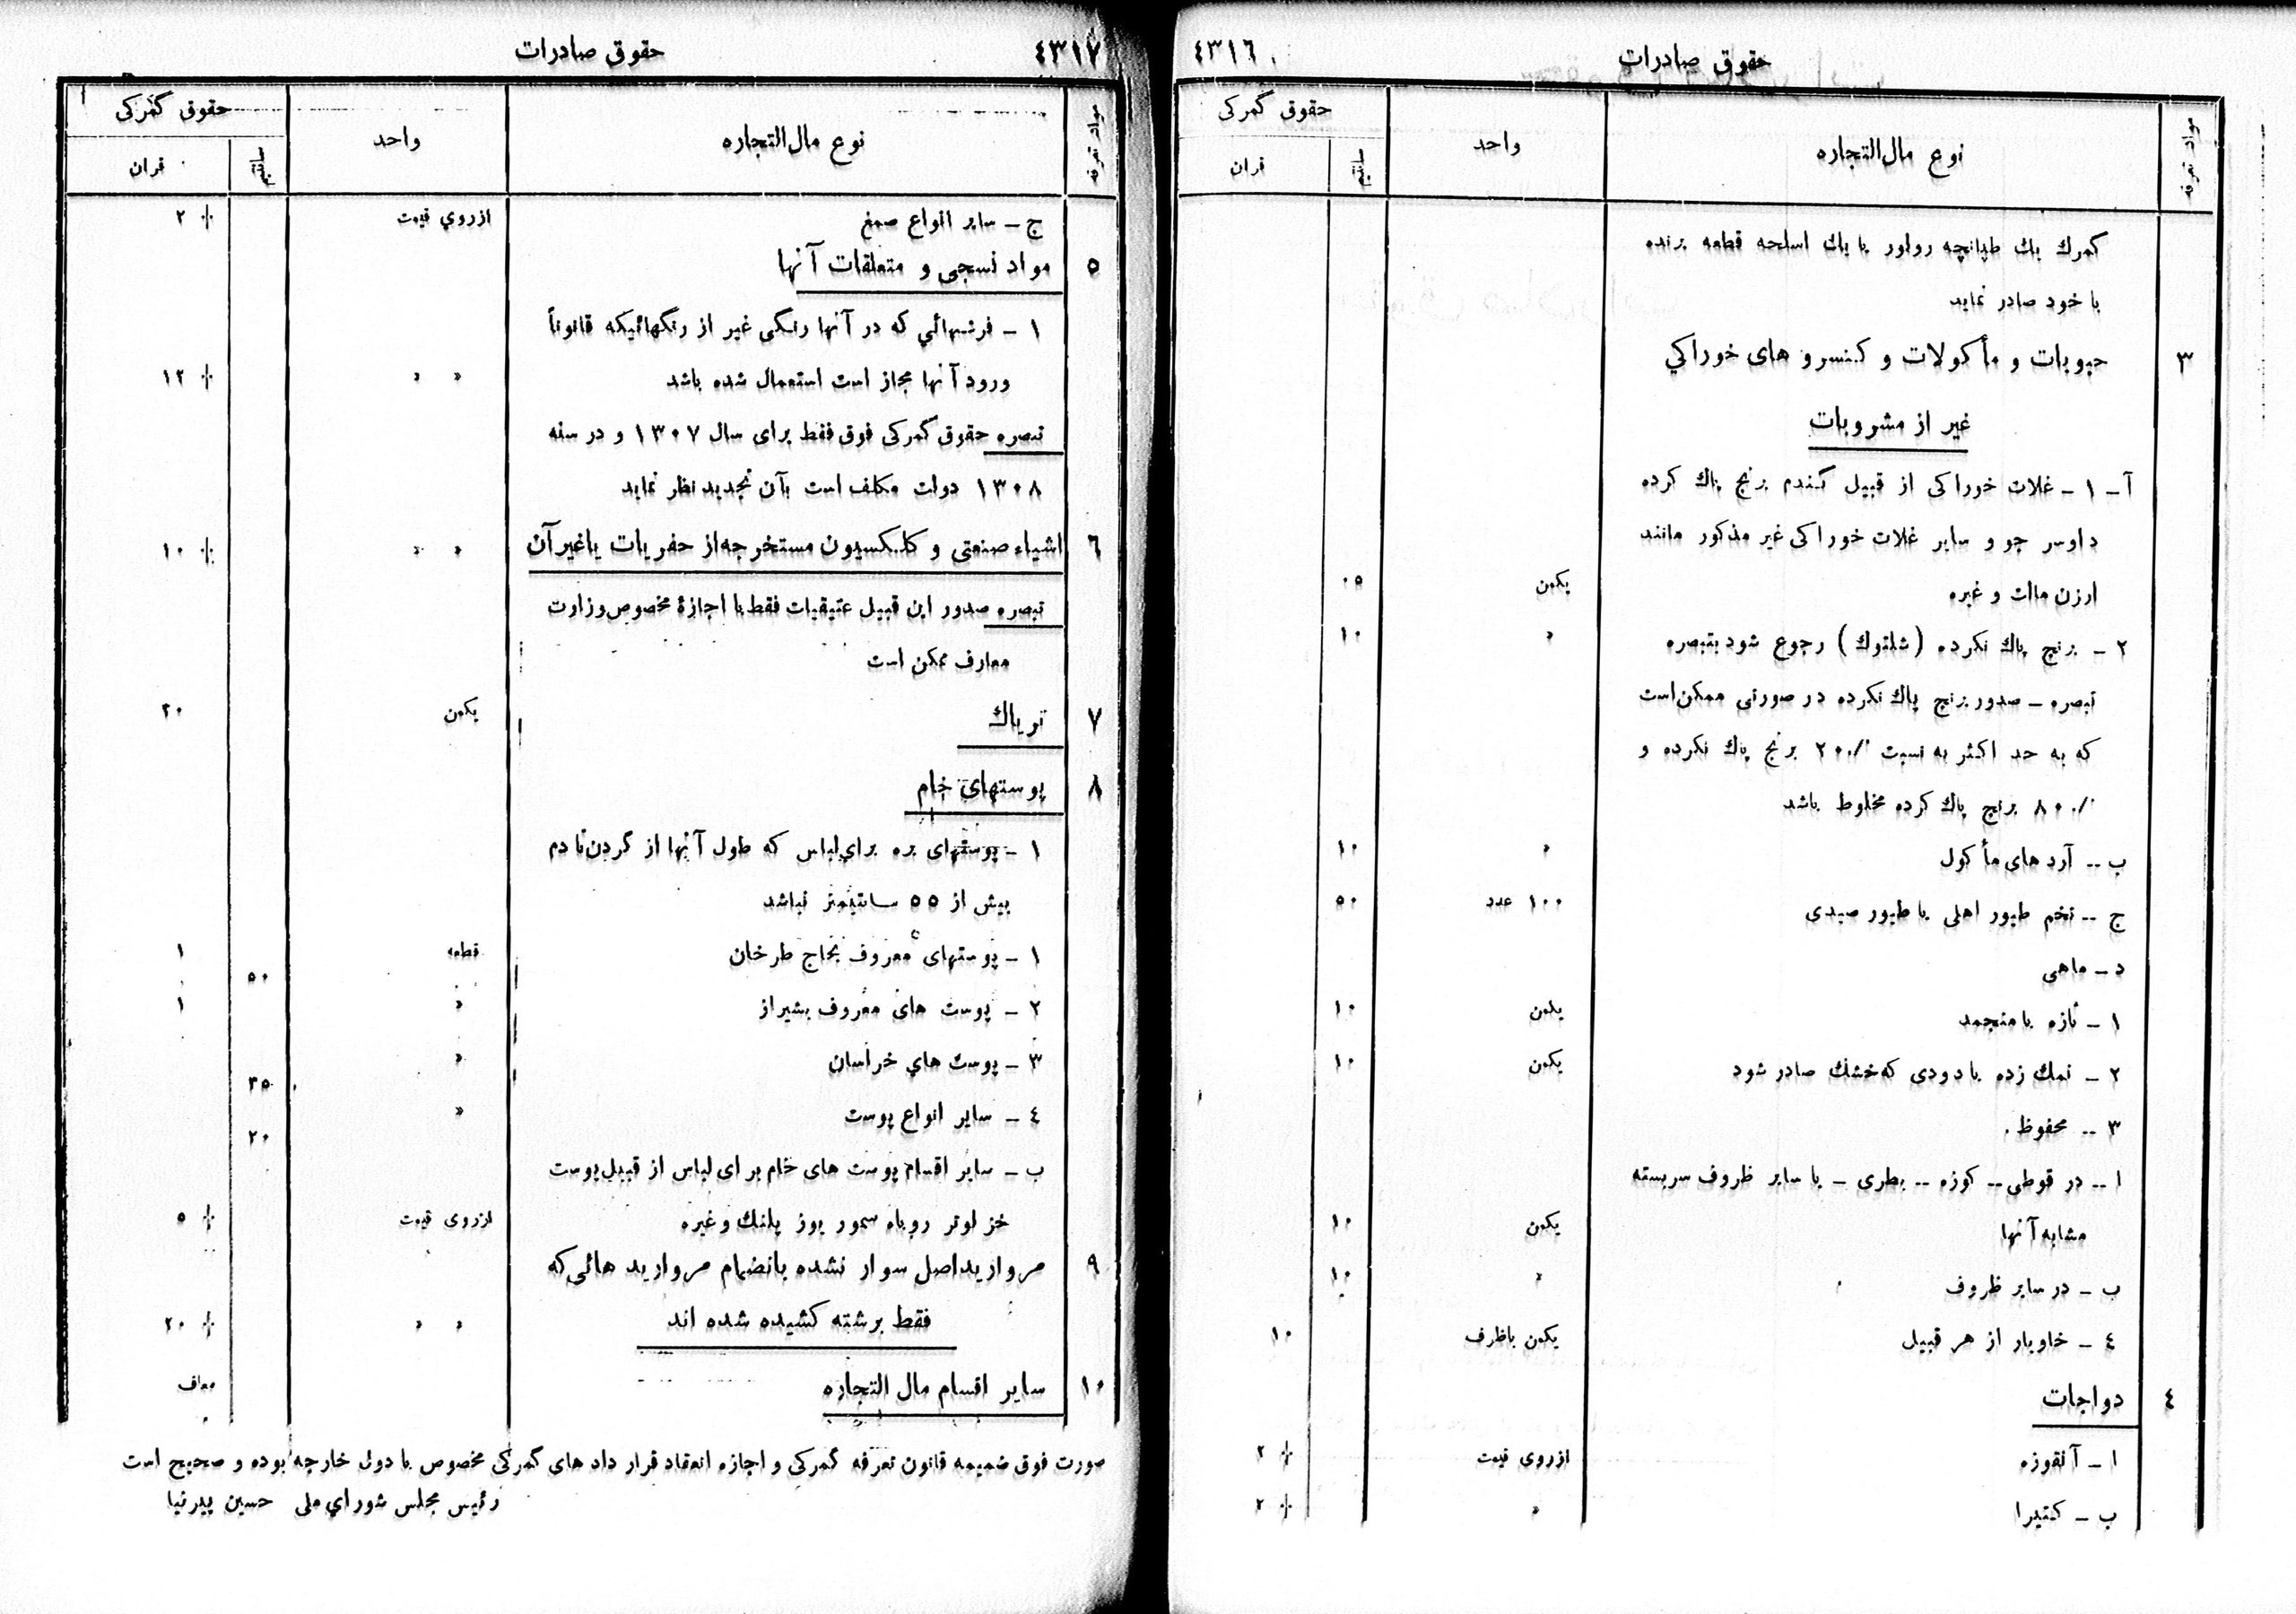 ٤٣١٦
حقوق صادرات
مواد تعرفه
نوع مال‌التجاره
واحد
حقوق گمرکی
سانتیم
قران
گمرك یك طپانچه رولور یا یك اسلحه قطعه برنده
با خود صادر نماید
۳ حبوبات و مأکولات و کنسرو های خوراکي
غیر از مشروبات
آ – ۱ – غلات خوراکی از قبیل گندم برنج پاك کرده
داوسر جو و سایر غلات خوراکی غیر مذکور مانند
ارزن ماش و غیره یکمن ۰۵
۲ – برنج پاك نکرده (شلتوك) رجوع شود بتبصره » ۱۰
تبصره – صدور برنج پاك نکرده در صورتی ممکن است
که به حد اکثر به نسبت ٪۲۰ برنج پاك نکرده و
٪۸۰ برنج پاك کرده مخلوط باشد
ب – آرد های مأکول » ۱۰
ج – تخم طیور اهلی یا طیور صیدی ۱۰۰ عدد ۵۰
د – ماهی
۱ – تازه یا منجمد یکمن ۱۰
۲ – نمك زده یا دودی که خشك صادر شود یکمن ۱۰
۳ – محفوظ .
ا – در قوطی – کوزه – بطری – یا سایر ظروف سربسته
مشابه آنها یکمن ۱۰
ب – در سایر ظروف » ۱۰
٤ – خاویار از هر قبیل یکمن باظرف ۱۰
٤ دواجات
ا – آنقوزه ازروی قیمت ٪ ۲
ب – کتیرا » ٪ ۲
٤٣١٧
حقوق صادرات
مواد تعرفه
نوع مال‌التجاره
واحد
حقوق گمرکی
سانتیم
قران
ج – سایر انواع صمغ ازروي قیمت ٪ ۲
۵ مواد نسجی و متعلقات آنها
۱ – فرشهائي که در آنها رنگی غیر از رنگهائیکه قانوناً
ورود آنها مجاز است استعمال شده باشد » » ٪ ۱۲
تبصره حقوق گمرکی فوق فقط برای سال ۱۳۰۷ و در سنه
۱۳۰۸ دولت مکلف است بآن تجدید نظر نماید
٦ اشیاء صنعتی و کلکسیون مستخرجه از حفریات یاغیرآن » » ٪ ۱۰
تبصره صدور این قبیل عتیقیات فقط با اجازهٔ مخصوص وزارت
معارف ممکن است
۷ تریاك یکمن ۲۰
۸ پوستهای خام
۱ – پوستهای بره برای لباس که طول آنها از گردن تا دم
بیش از ۵۵ سانتیمتر نباشد
۱ – پوستهای معروف بحاج طرخان قطعه ۱ ۵۰
۲ – پوست های معروف بشیراز » ۱
۳ – پوست هاي خراسان » ۳۵
٤ – سایر انواع پوست » ۲۰
ب – سایر اقسام پوست های خام برای لباس از قبیل پوست
خز لوتر روباه سمور یوز پلنك وغیره ازروی قیمت ٪ ۵
۹ مروارید اصل سوار نشده بانضمام مروارید هائی که
فقط برشته کشیده شده اند » » ٪ ۲۰
۱۰ سایر اقسام مال التجاره معاف
صورت فوق ضمیمه قانون تعرفه گمرکی و اجازه انعقاد قرار داد های گمرکی مخصوص با دول خارجه بوده و صحیح است
رئیس مجلس شوراي ملی حسین پیرنیا